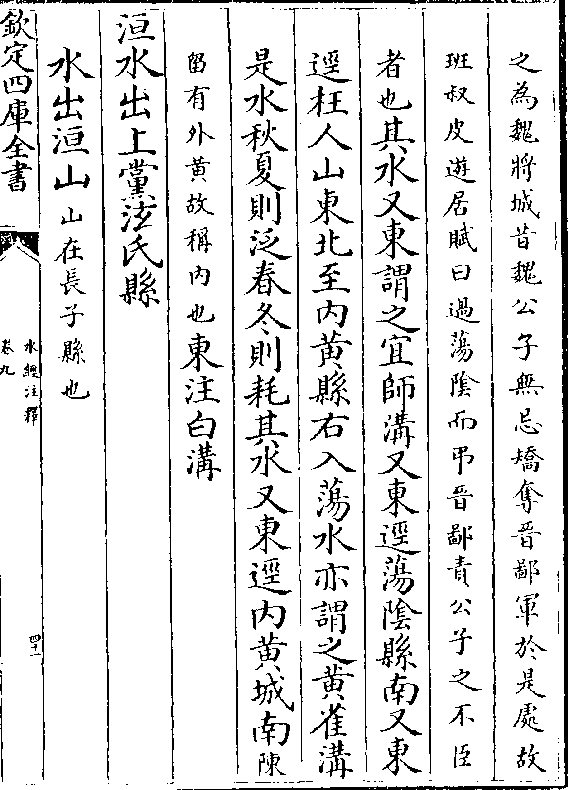 之為魏將城昔魏公子無忌矯奪晉鄙軍於是處故
班叔皮遊居賦曰過蕩陰而弔晉鄙責公子之不臣
者也其水又東謂之宜師溝又東逕蕩陰縣南又東
逕枉人山東北至内黄縣右入蕩水亦謂之黄雀溝
是水秋夏則泛春冬則耗其水又東逕内黄城南陳
留有外黄故稱内也東注白溝
洹水出上黨泫氏縣
水出洹山山在長子縣也
欽定四庫全書
水經注釋
卷九
四十一